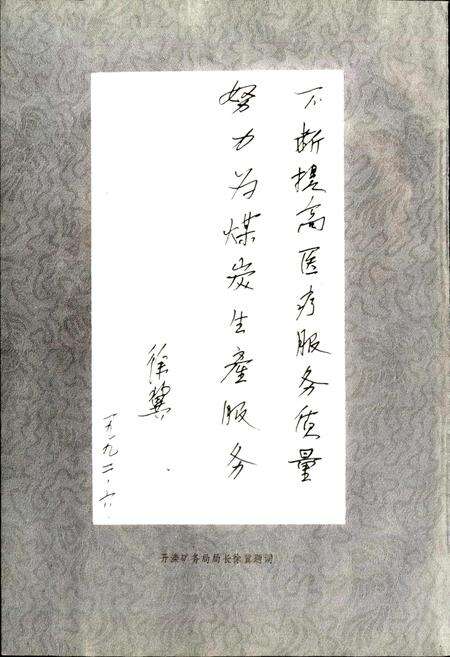 不断提高医疗服务质量
努力为煤炭生產服务
徐冀
一九九二·六
开滦矿务局局长徐冀题词